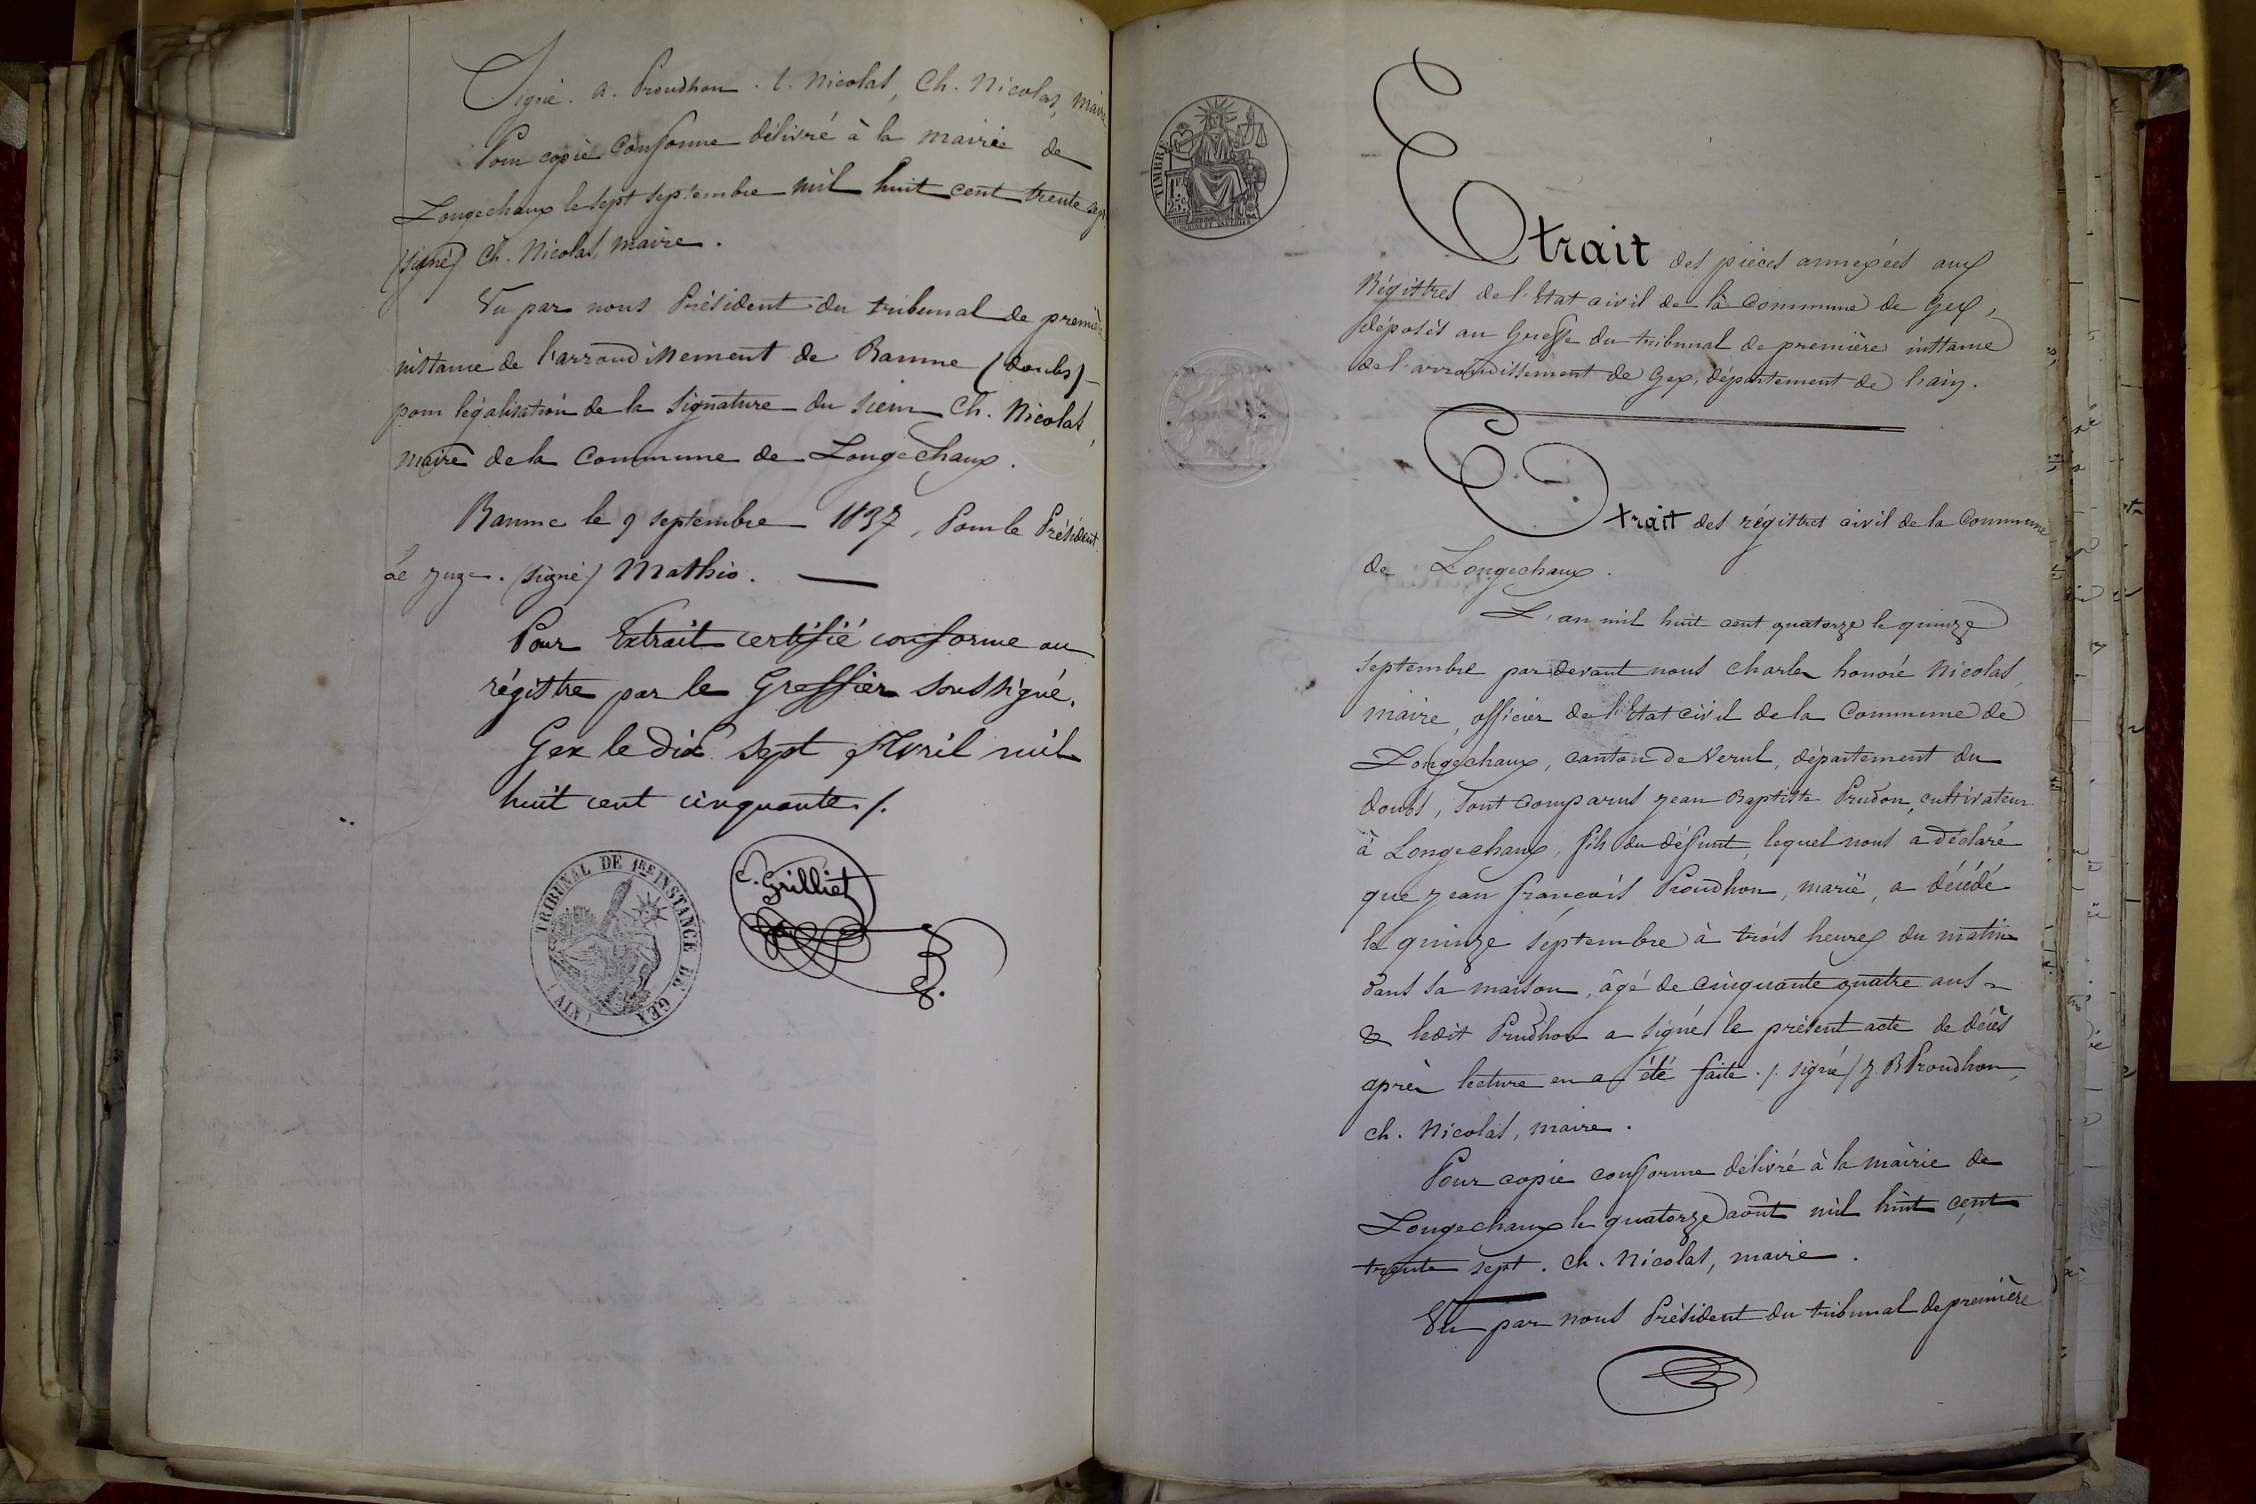 Signé. A. Proudhon. C. Nicolas, Ch. Nicolas, Maire
Pour copie conforme délivré à la mairie de
Longechaux le sept septembre mil huit cent trente sept
(signé) Ch. Nicolas, maire.
Vu par nous Président du tribunal de première
instance de l'arrondissement de Baume (doubs)
pour légalisation de la signature du sieur Ch. Nicolas,
maire de la Commune de Longechaux.
Baume le 9 septembre 1837, Pour le Président.
Le Juge. (signé) Mathio.
Pour Extrait certifié conforme au
régistre par le Greffier soussigné.
Gex le dix sept Avril mil
huit cent cinquante /.
C. Grilliet
TRIBUNAL DE 1RE INSTANCE DE GEX
(AIN)
TIMBRE
25c
Extrait des pièces annexées aux
Régistres de l'Etat civil de la Commune de Gex,
déposés au Greffe du tribunal de première instance
de l'arrondissement de Gex, département de l'ain.
Extrait des régistres civil de la Commune
de Longechaux.
L'an mil huit cent quatorze le quinze
septembre par devant nous Charles honoré Nicolas,
maire, officier de l'Etat civil de la Commune de
Longechaux, canton de Verul, département du
doubs, sont comparus Jean Baptiste Prudon, cultivateur
à Longechaux, fils du défunt, lequel nous a déclaré
que Jean françois Proudhon, marié, a décédé
le quinze septembre à trois heures du matin
dans sa maison, âgé de cinquante quatre ans
& ledit Prudhon a signé le présent acte de décès
après lecture en a été faite. /. signé / J. B Proudhon,
ch. Nicolas, maire.
Pour copie conforme délivré à la mairie de
Longechaux le quatorze août mil huit cent
trente sept. Ch. Nicolas, maire.
Vu par nous Président du tribunal de première